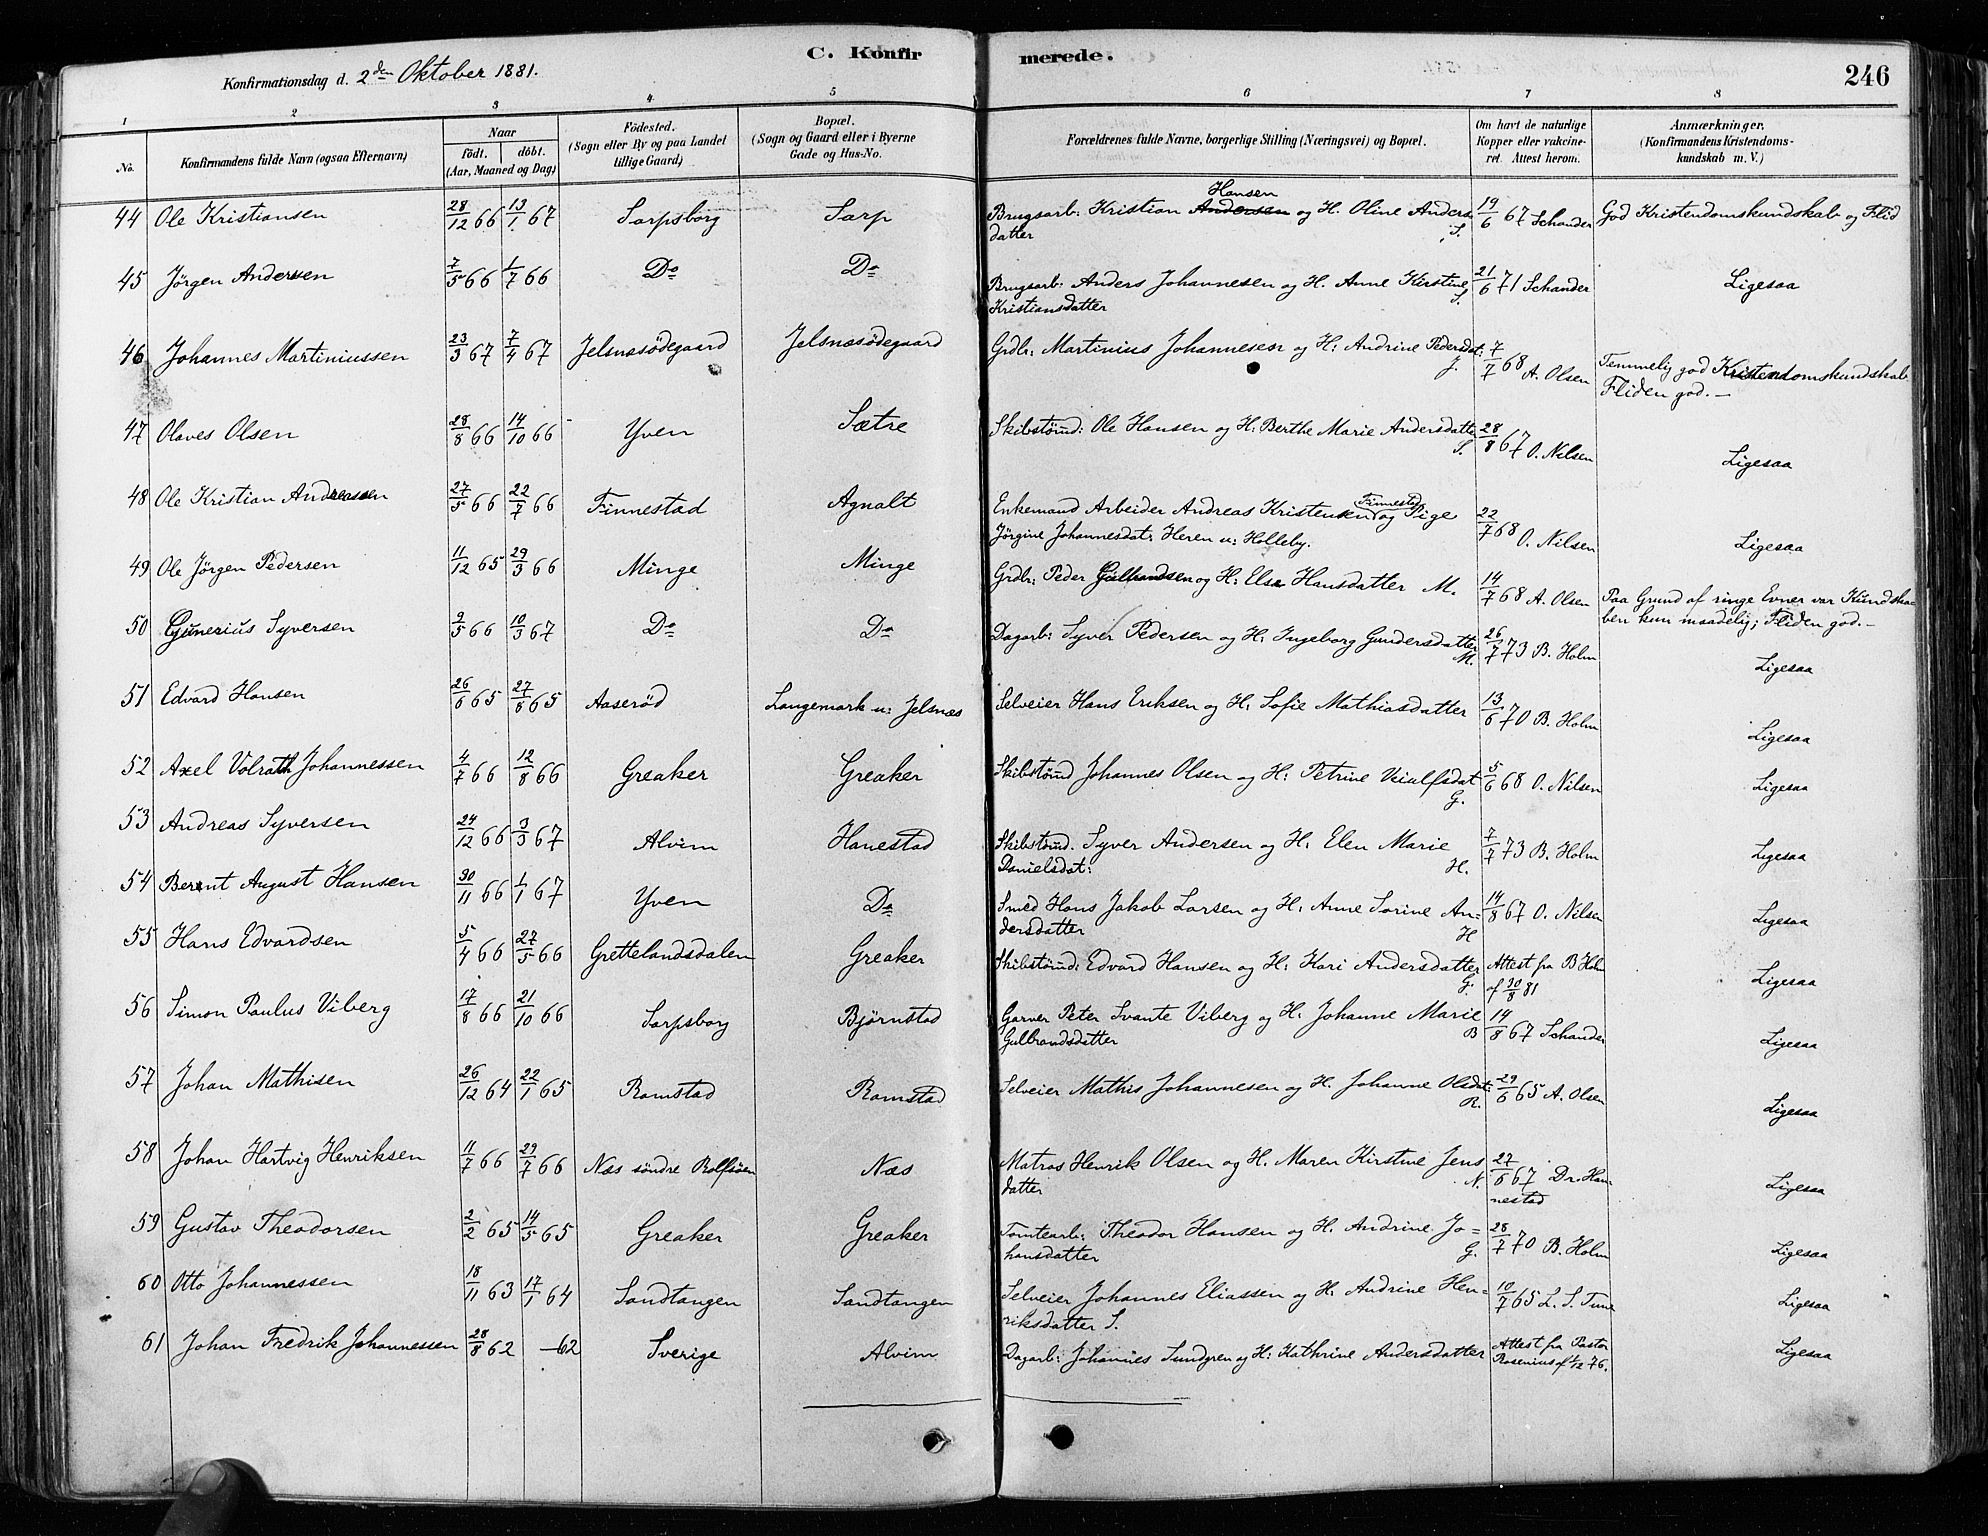 C. Konfirmerede.
246
Konfirmationsdag d. 2den Oktober 1881.
1 2 3 4 5 6 7 8
No. Konfirmandens fulde Navn (ogsaa Efternavn) Naar født. døbt. (Aar, Maaned og Dag) Fødested. (Sogn eller By og paa Landet tillige Gaard) Bopæl. (Sogn og Gaard eller i Byerne Gade og Hus-No. Forældrenes fulde Navne, borgerlige Stilling (Næringsvei) og Bopæl. Om havt de naturlige Kopper eller vakcineret. Attest herom. Anmærkninger. (Konfirmandens Kristendomskundskab m. V.)
44 Ole Kristiansen 28/12 66 13/1 67 Sarpsborg Sarp Brugsarb: Kristian Andersen Hansen og H. Oline Andersdatter S. 19/6 67 Schander God Kristendomskundskab og Flid
45 Jørgen Andersen 7/5 66 1/7 66 Do Do Brugsarb: Anders Johannesen og H. Anne Kirstine Kristiansdatter S. 21/6 71 Schander Ligesaa
46 Johannes Martiniussen 23/3 67 7/4 67 Jelsnæsødegaard Jelsnæsødegaard Grdbr: Martinius Johannesen og H: Andrine Pedersdat: J. 7/7 68 A. Olsen Temmelig god Kristendomskundskab Fliden god.-
47 Olaves Olsen 28/8 66 14/10 66 Yven Sætre Skibstømd: Ole Hansen og H: Berthe Marie Andersdatter S. 28/8 67 O. Nilsen Ligesaa
48 Ole Kristian Andreasen 27/5 66 22/7 66 Finnestad Agnalt Enkemand Arbeider Andreas Kristensen Finnestad og Pige Jørgine Johannesdat: Heren u: Holleby. 22/7 68 O. Nilsen Ligesaa
49 Ole Jørgen Pedersen 11/12 65 29/3 66 Minge Minge Grdbr: Peder Gulbrandsen og H: Else Hansdatter M. 14/7 68 A. Olsen Paa Grund af ringe Evner var Kundskaben kun maadelig; Fliden god.-
50 Gunerius Syversen 9/5 66 10/3 67 Do Do Dagarb: Syver Pedersen og H: Ingeborg Gundersdatter M. 26/7 73 B. Holm Ligesaa
51 Edvard Hansen 26/6 65 27/8 65 Aaserød Langemark u: Jelsnæs Selveier Hans Eriksen og H: Sofie Mathiasdatter 13/6 70 B. Holm Ligesaa
52 Axel Volrath Johannessen 4/7 66 12/8 66 Greaker Greaker Skibstømd Johannes Olsen og H: Petrine Veialfsdat G. 5/6 68 O. Nilsen Ligesaa
53 Andreas Syversen 24/12 66 3/3 67 Alvim Hanestad Skibstømd. Syver Andersen og H. Elen Marie Danielsdat: H. 7/7 73 B. Holm Ligesaa
54 Bernt August Hansen 30/11 66 1/1 67 Yven Do Smed Hans Jakob Larsen og H: Anne Sorine Andersdatter H 14/8 67 O. Nilsen Ligesaa
55 Hans Edvardsen 5/4 66 27/5 66 Grettelandsdalen Greaker Skibstømd: Edvard Hansen og H: Kari Andersdatter G. Attest fra B Holm af 30/8 81 Ligesaa
56 Simon Paulus Viberg 17/8 66 21/10 66 Sarpsborg Bjørnstad Garver Peter Svante Viberg og H. Johanne Marie Gulbrandsdatter B 14/8 67 Schander Ligesaa
57 Johan Mathisen 26/12 64 22/1 65 Ramstad Ramstad Selveier Mathis Johannesen og H. Johanne Olsdat: R. 29/6 65 A. Olsen Ligesaa
58 Johan Hartvig Henriksen 11/7 66 29/7 66 Næs søndre Rolfsøen Næs Matros Henrik Olsen og H. Maren Kirstine Jensdatter N. 27/6 67 Dr. Hannestad Ligesaa
59 Gustav Theodorsen 2/2 65 14/5 65 Greaker Greaker Tomtearb: Theodor Hansen og H. Andrine Johansdatter G. 28/7 70 B. Holm Ligesaa
60 Otto Johannessen 18/11 63 17/1 64 Sandtangen Sandtangen Selveier Johannes Eliassen og H. Andrine Henriksdatter S. 10/7 65 L. S. Tune Ligesaa
61 Johan Fredrik Johannessen 28/8 62 -62 Sverige Alvim Dagarb: Johannes Sundgren og H: Kathrine Andersdatter Attest fra Pastor Rosenius af 1/12 76. Ligesaa